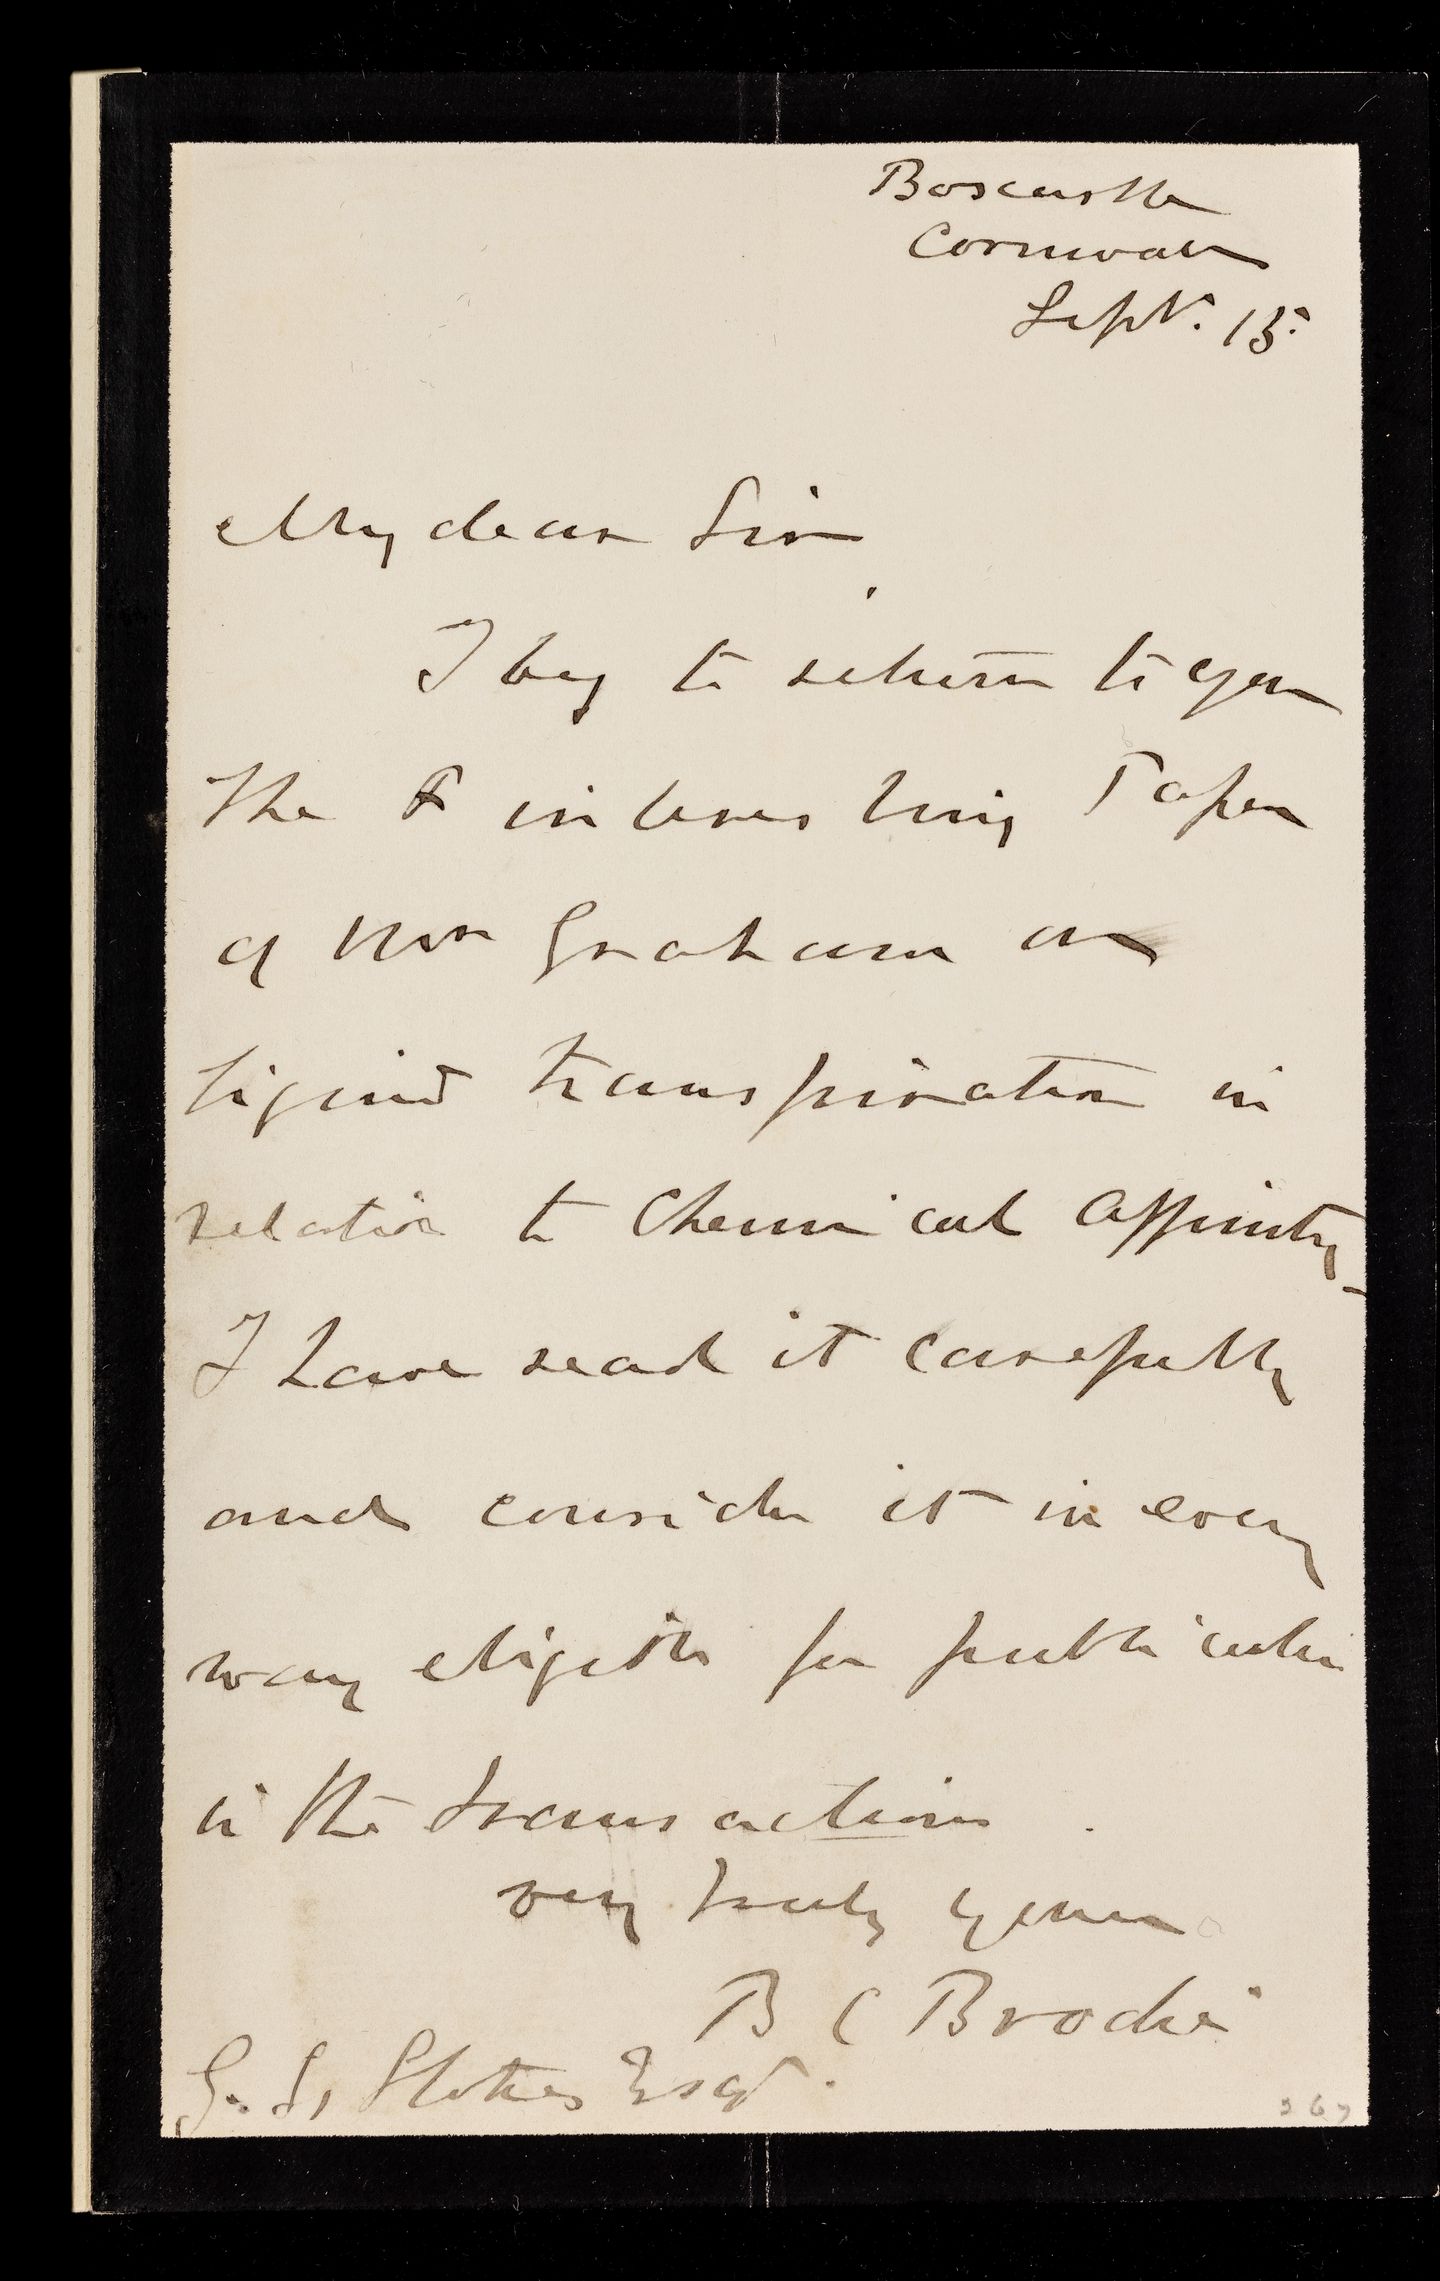 Boscastle
Cornwall
Sept. 15.
My dear Sir
I beg to return to you
the interesting Paper
of Mr Graham on
liquid transpiration in
relation to Chemical Affinity_
I have read it carefully
and consider it in every
way eligible for publication
in the Transactions.
very truly yours
B C Brodie
G. G. Stokes Esqr.
267